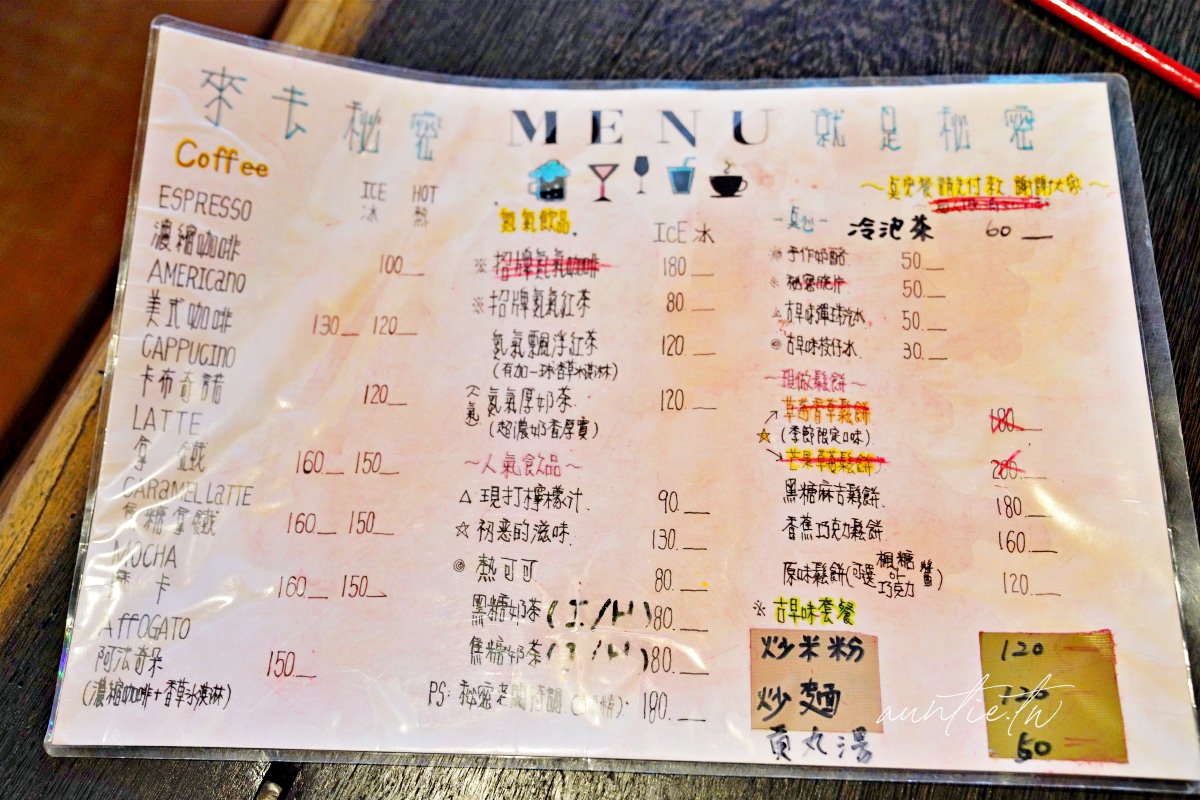 來去秘密 MENU 就是秘密
Coffee
ICE HOT
冰 熱
ESPRESSO
濃縮咖啡 100
AMERICANO
美式咖啡 130 120
CAPPUCINO
卡布奇諾 120
LATTE
拿鐵 160 150
CARAMELLATTE
焦糖拿鐵 160 150
MOCHA
摩卡 160 150
AFFOGATO
阿法奇朵 150
(濃縮咖啡+香草冰淇淋)
氮氣飲品
ICE 冰
※ 招牌氮氣咖啡 180
※ 招牌氮氣紅茶 80
氮氣飄浮紅茶 120
(有加一球香草冰淇淋)
人氣 氮氣厚奶茶 120
(超濃奶香厚實)
~人氣飲品~
△ 現打檸檬汁 90
☆ 初恋的滋味 130
◎ 熱可可 80
黑糖奶茶 (I/H) 80
焦糖奶茶 (I/H) 80
PS: 秘密老闆特調 180
~點完餐請先付款 謝謝大家~
-點心-
冷泡茶 60
※ 手作奶酪 50
※ 秘密脆片 50
△ 古早味彈珠汽水 50
◎ 古早味枝仔冰 30
~現做鬆餅~
草莓香草鬆餅 180
☆ (季節限定口味)
芒果草莓鬆餅 200
黑糖麻吉鬆餅 180
香蕉巧克力鬆餅 160
原味鬆餅(可選 楓糖 or 巧克力 醬) 120
※ 古早味套餐
炒米粉 120
炒麵 120
貢丸湯 50
auntie.tw